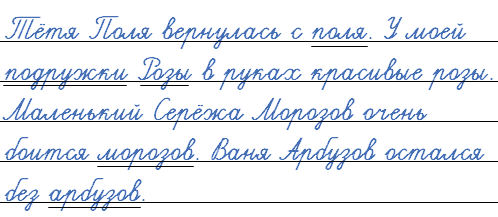 Тётя Поля вернулась с поля. У моей
подружки Розы в руках красивые розы.
Маленький Серёжа Морозов очень
боится морозов. Ваня Арбузов остался
без арбузов.